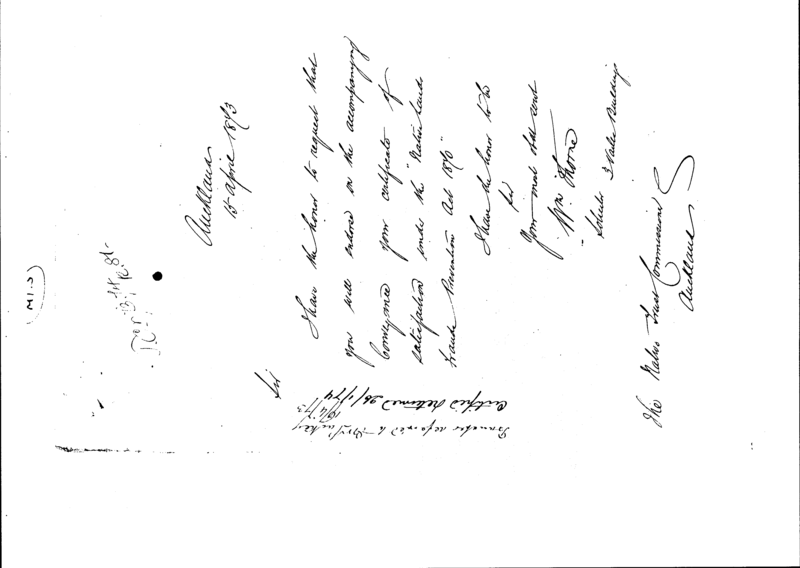 M1.3
Auckland
15 April 1873
Sir
I have the honor to request that
you will endorse on the accompanying
Conveyance your certificate of
satisfaction under the "Native Lands
Frauds Prevention Act 1870"
I have the honor to be
Sir
Your most obdt servt
Wm Thorne
Solicitor 3 Vale Buildings
The Native Trust Commissioner
Auckland
Transfer referred to
16/4/73
Certified & returned 26/1/74